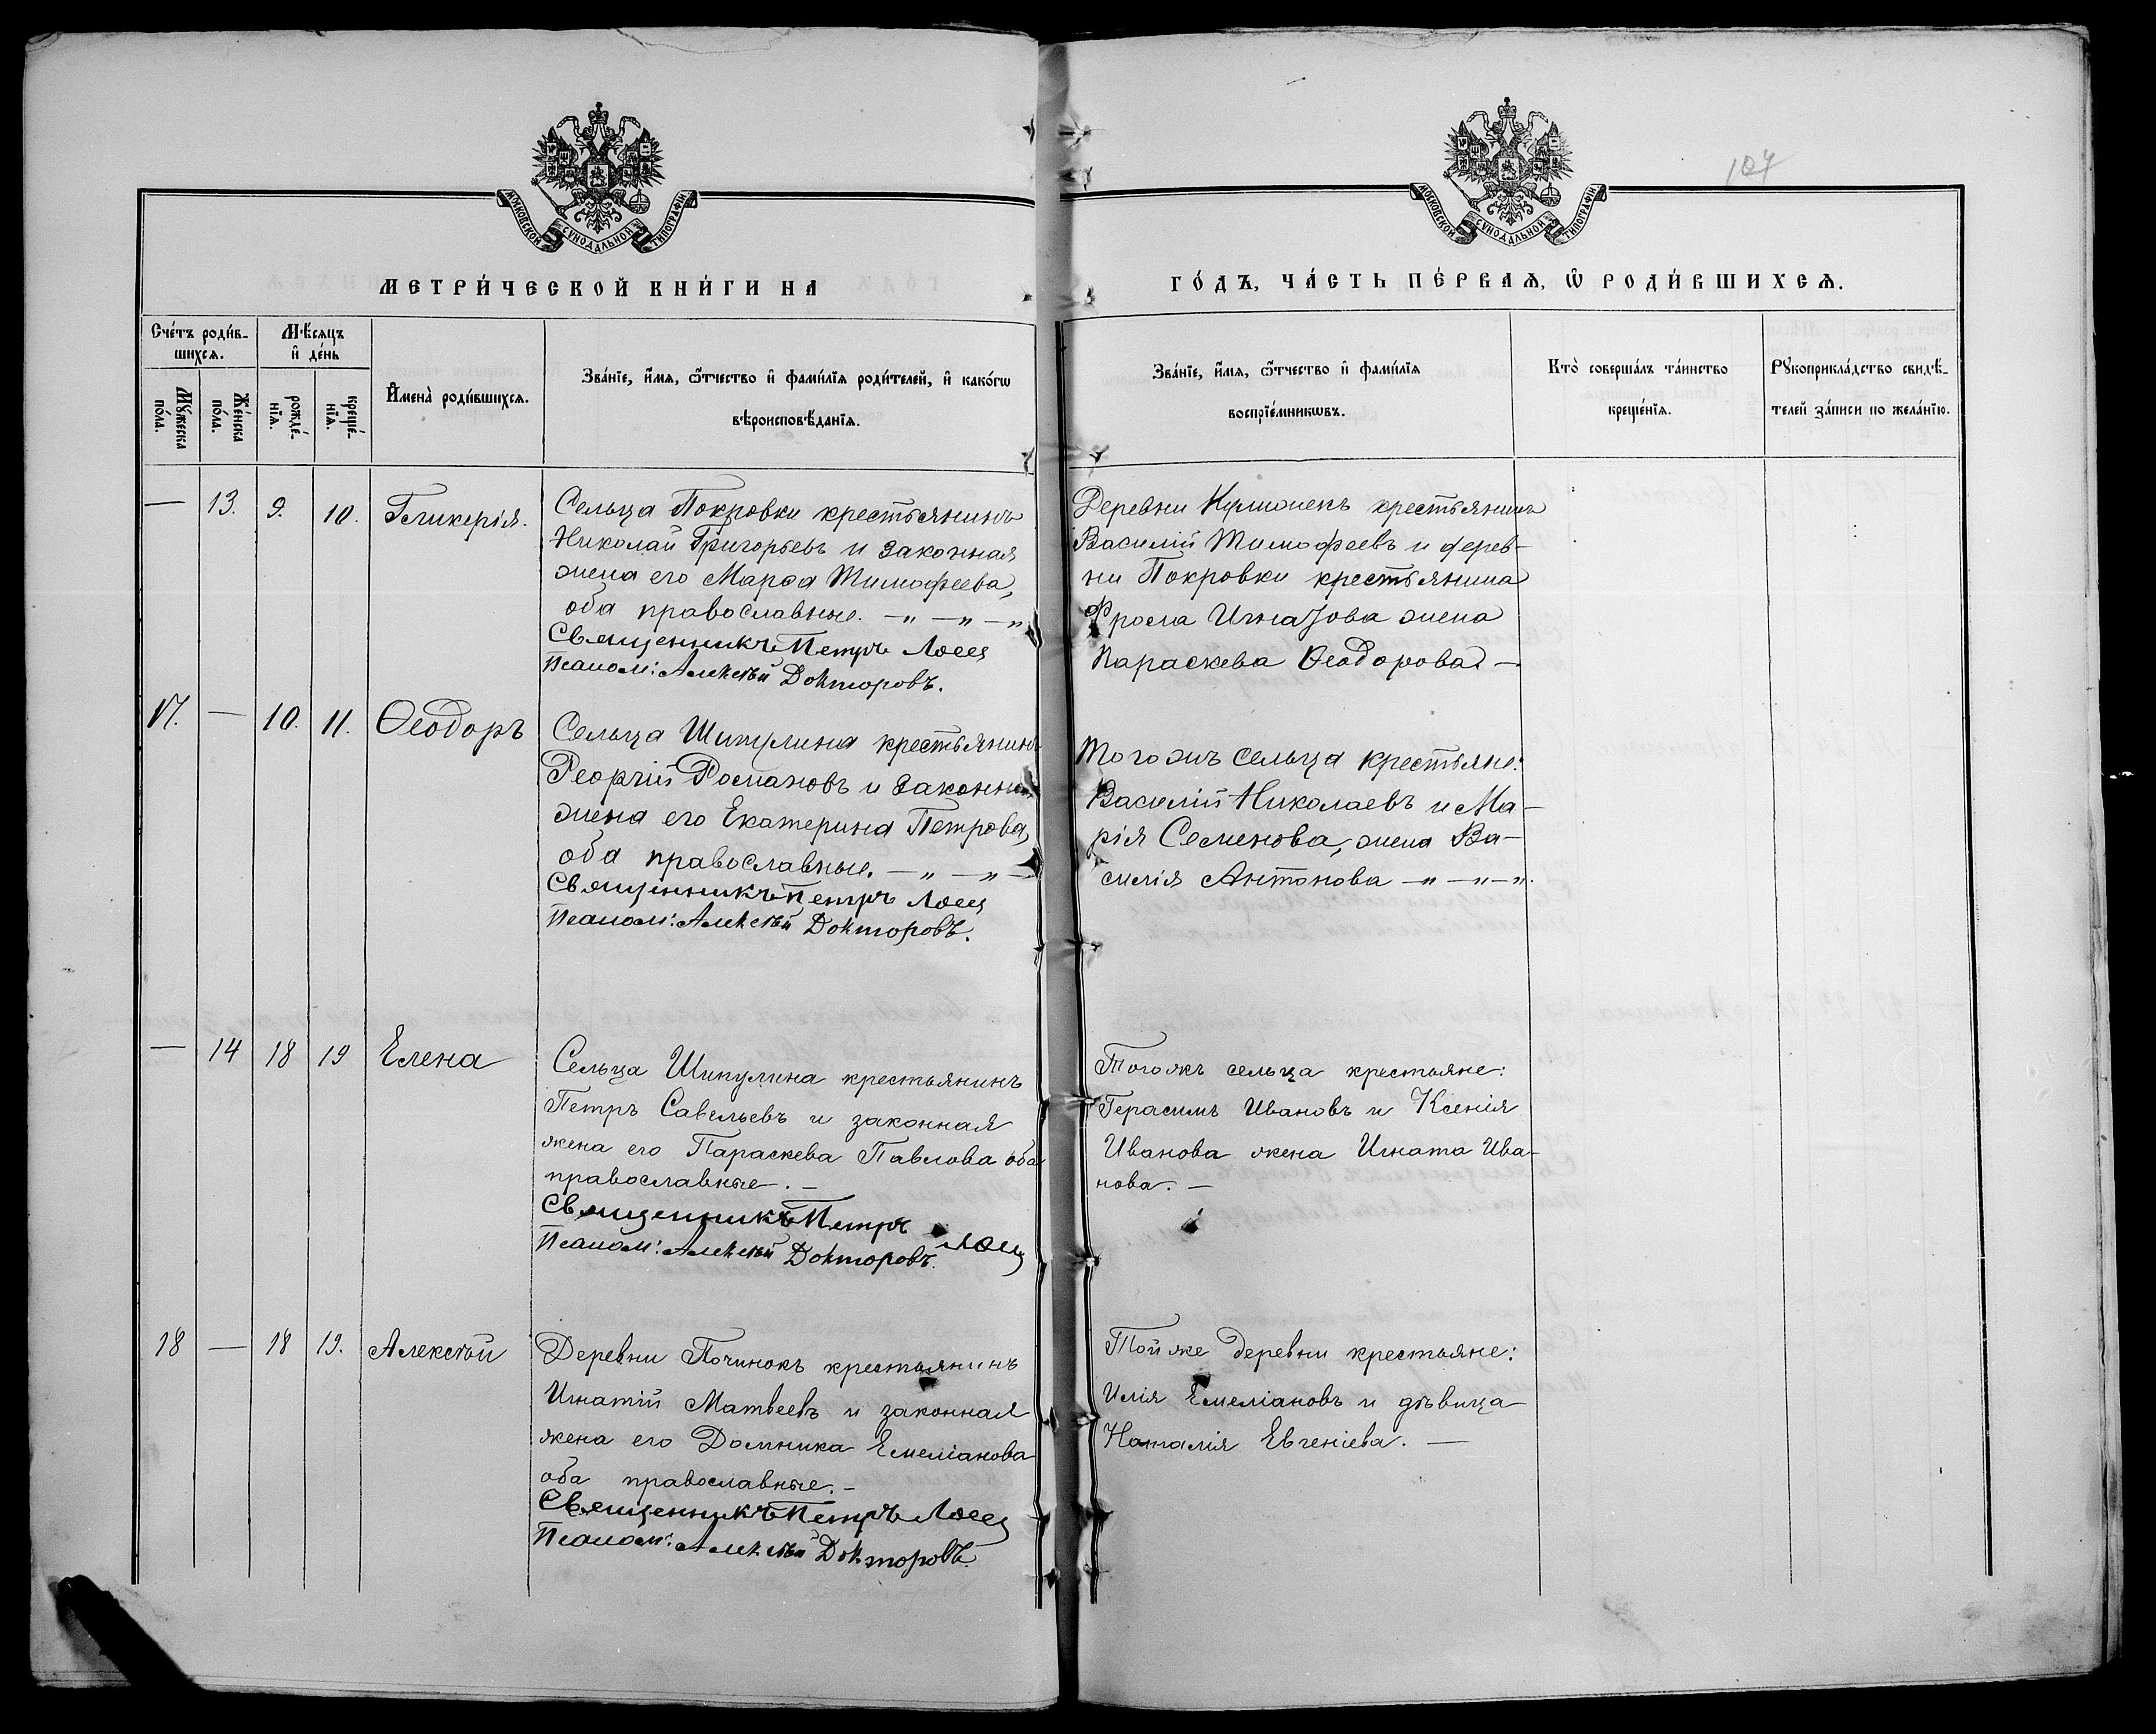 107
МОСКОВСКОЙ СУНОДАЛЬНОЙ ТИПОГРАФІИ
МОСКОВСКОЙ СУНОДАЛЬНОЙ ТИПОГРАФІИ
МЕТРИ́ЧЕСКОЙ КНИ́ГИ НА
ГО́ДЪ, ЧА́СТЬ ПЕ́РВАѦ, Ѿ РОДИ́ВШИХСѦ.
Сче́тъ роди́в-
шихсѧ.
Мѣ́сѧцъ
и҆ де́нь
Мꙋ́жеска
по́ла.
Же́нска
по́ла.
рожде́-
нїѧ.
креще́-
нїѧ.
И҆мена̀ роди́вшихсѧ.
Зва́нїе, и҆́мѧ, ѻ҆́тчество и҆ фами́лїѧ роди́телей, и҆ како́гѡ
вѣроисповѣ́данїѧ.
Зва́нїе, и҆́мѧ, ѻ҆́тчество и҆ фами́лїѧ
воспрїе́мникѡвъ.
Кто̀ соверша́лъ та́инство
креще́нїѧ.
Рꙋкоприкла́дство свидѣ́-
телей за́писи по жела́нїю.
— 13. 9. 10. Гликерія.
Сельца Покровки крестьянинъ
Николай Григорьевъ и законная
жена его Марѳа Тимофеева,
оба православные. —„—„—„
Священникъ Петръ
Псалом: Алексѣй Докторовъ.
Деревни крестьянинъ
Василій Тимофеевъ и дерев-
ни Покровки крестьянина
Фрола жена
Параскева Ѳеодорова. —
17. — 10. 11. Ѳеодоръ
Сельца Шипулина крестьянинъ
Георгій Романовъ и законная
жена его Екатерина Петрова,
оба православные. —„—„—
Священникъ Петръ
Псалом: Алексѣй Докторовъ.
Тогожъ сельца крестьяне:
Василій Николаевъ и Ма-
рія Семенова, жена Ва-
силія Антонова —„—„—„.
— 14 18 19 Елена
Сельца Шипулина крестьянинъ
Петръ Савельевъ и законная
жена его Параскева Павлова оба
православные. —
Священникъ Петръ
Псалом: Алексѣй Докторовъ.
Тогожъ сельца крестьяне:
Герасимъ Ивановъ и Ксенія
Иванова жена Игната Ива-
нова. —
18 — 18 19. Алексѣй
Деревни Починокъ крестьянинъ
Игнатій Матвеевъ и законная
жена его Домника Емеліанова
оба православные. —
Священникъ Петръ
Псалом: Алексѣй Докторовъ.
Той же деревни крестьяне:
Илія Емеліановъ и дѣвица
Наталія Евгеніева. —